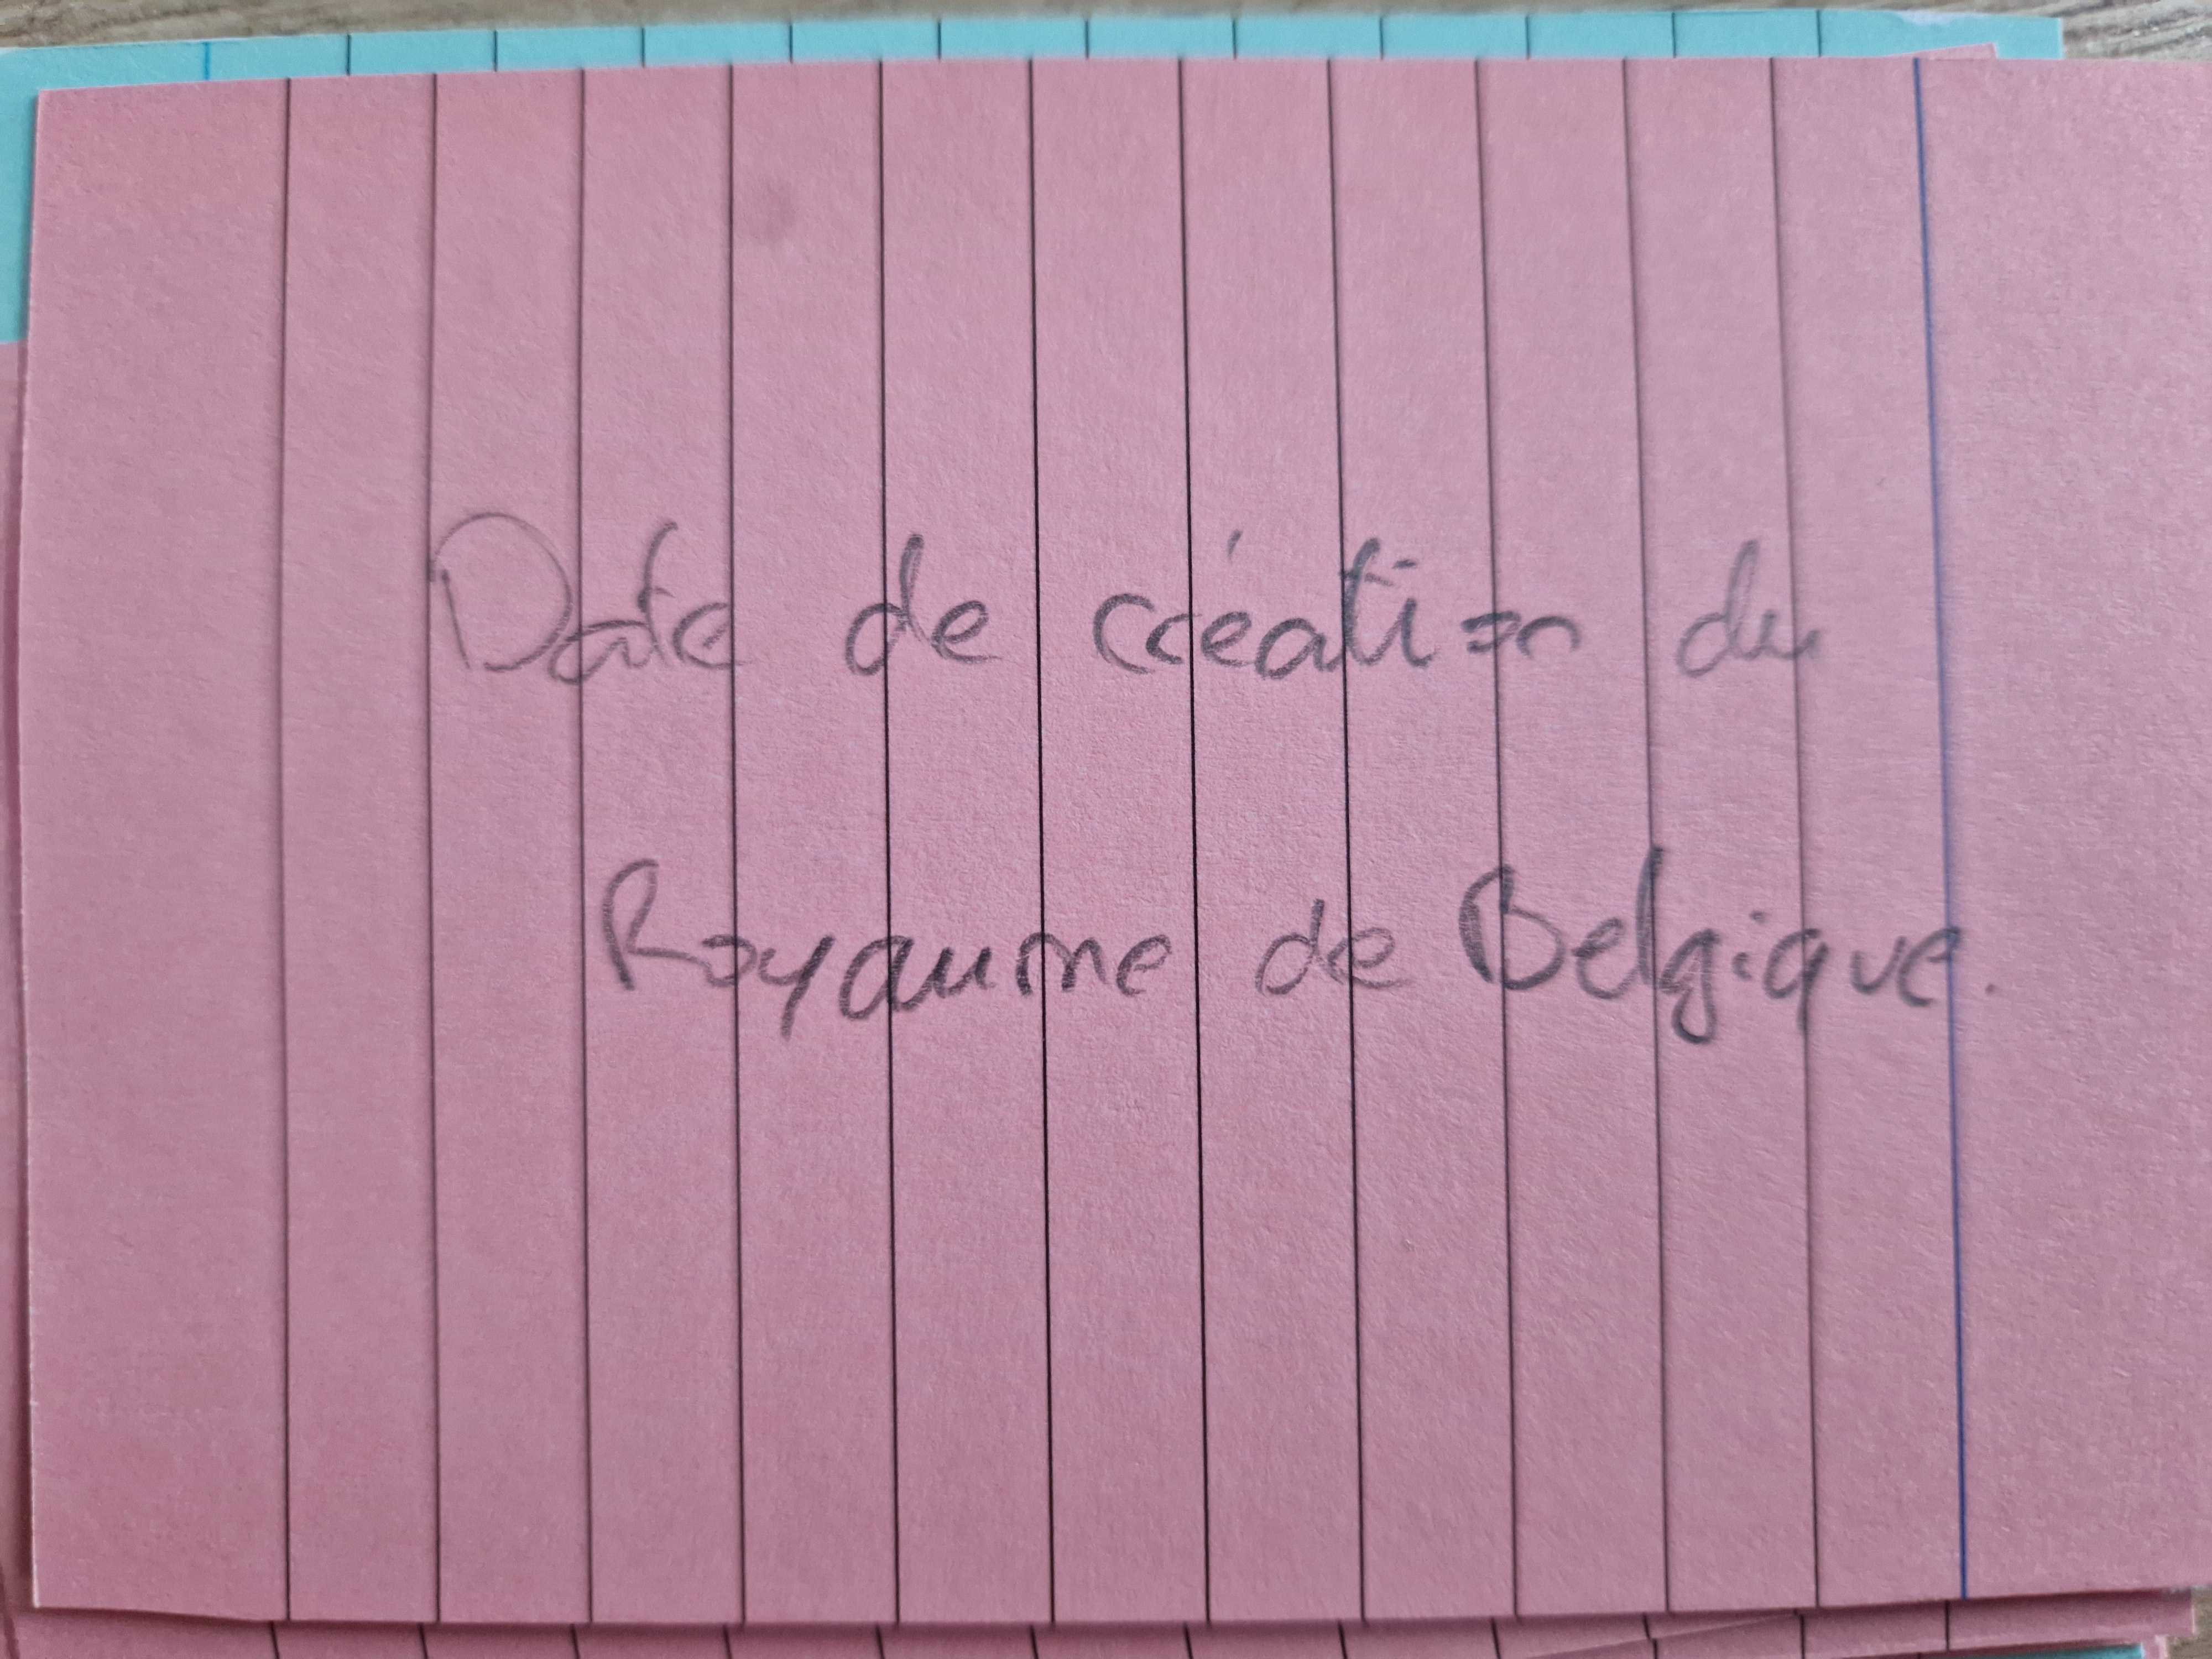 Date de création du
Royaume de Belgique.